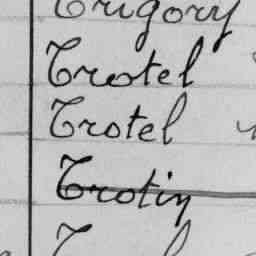 Trigory
Trotel
Trotel
Trotin